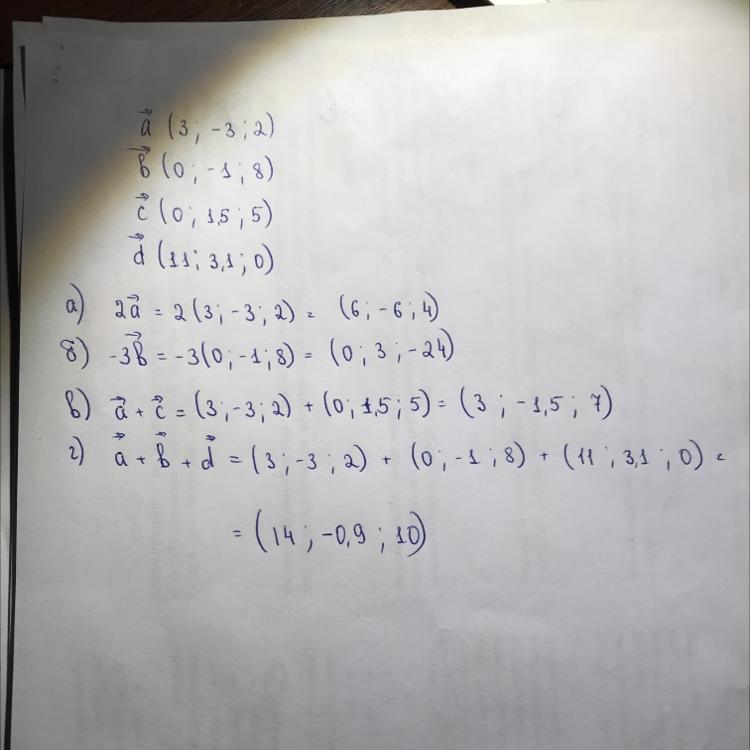 a⃗ (3; -3; 2)
b⃗ (0; -1; 8)
c⃗ (0; 1,5; 5)
d⃗ (11; 3,1; 0)
а) 2a⃗ = 2(3; -3; 2) = (6; -6; 4)
б) -3b⃗ = -3(0; -1; 8) = (0; 3; -24)
в) a⃗ + c⃗ = (3; -3; 2) + (0; 1,5; 5) = (3; -1,5; 7)
г) a⃗ + b⃗ + d⃗ = (3; -3; 2) + (0; -1; 8) + (11; 3,1; 0) =
= (14; -0,9; 10)